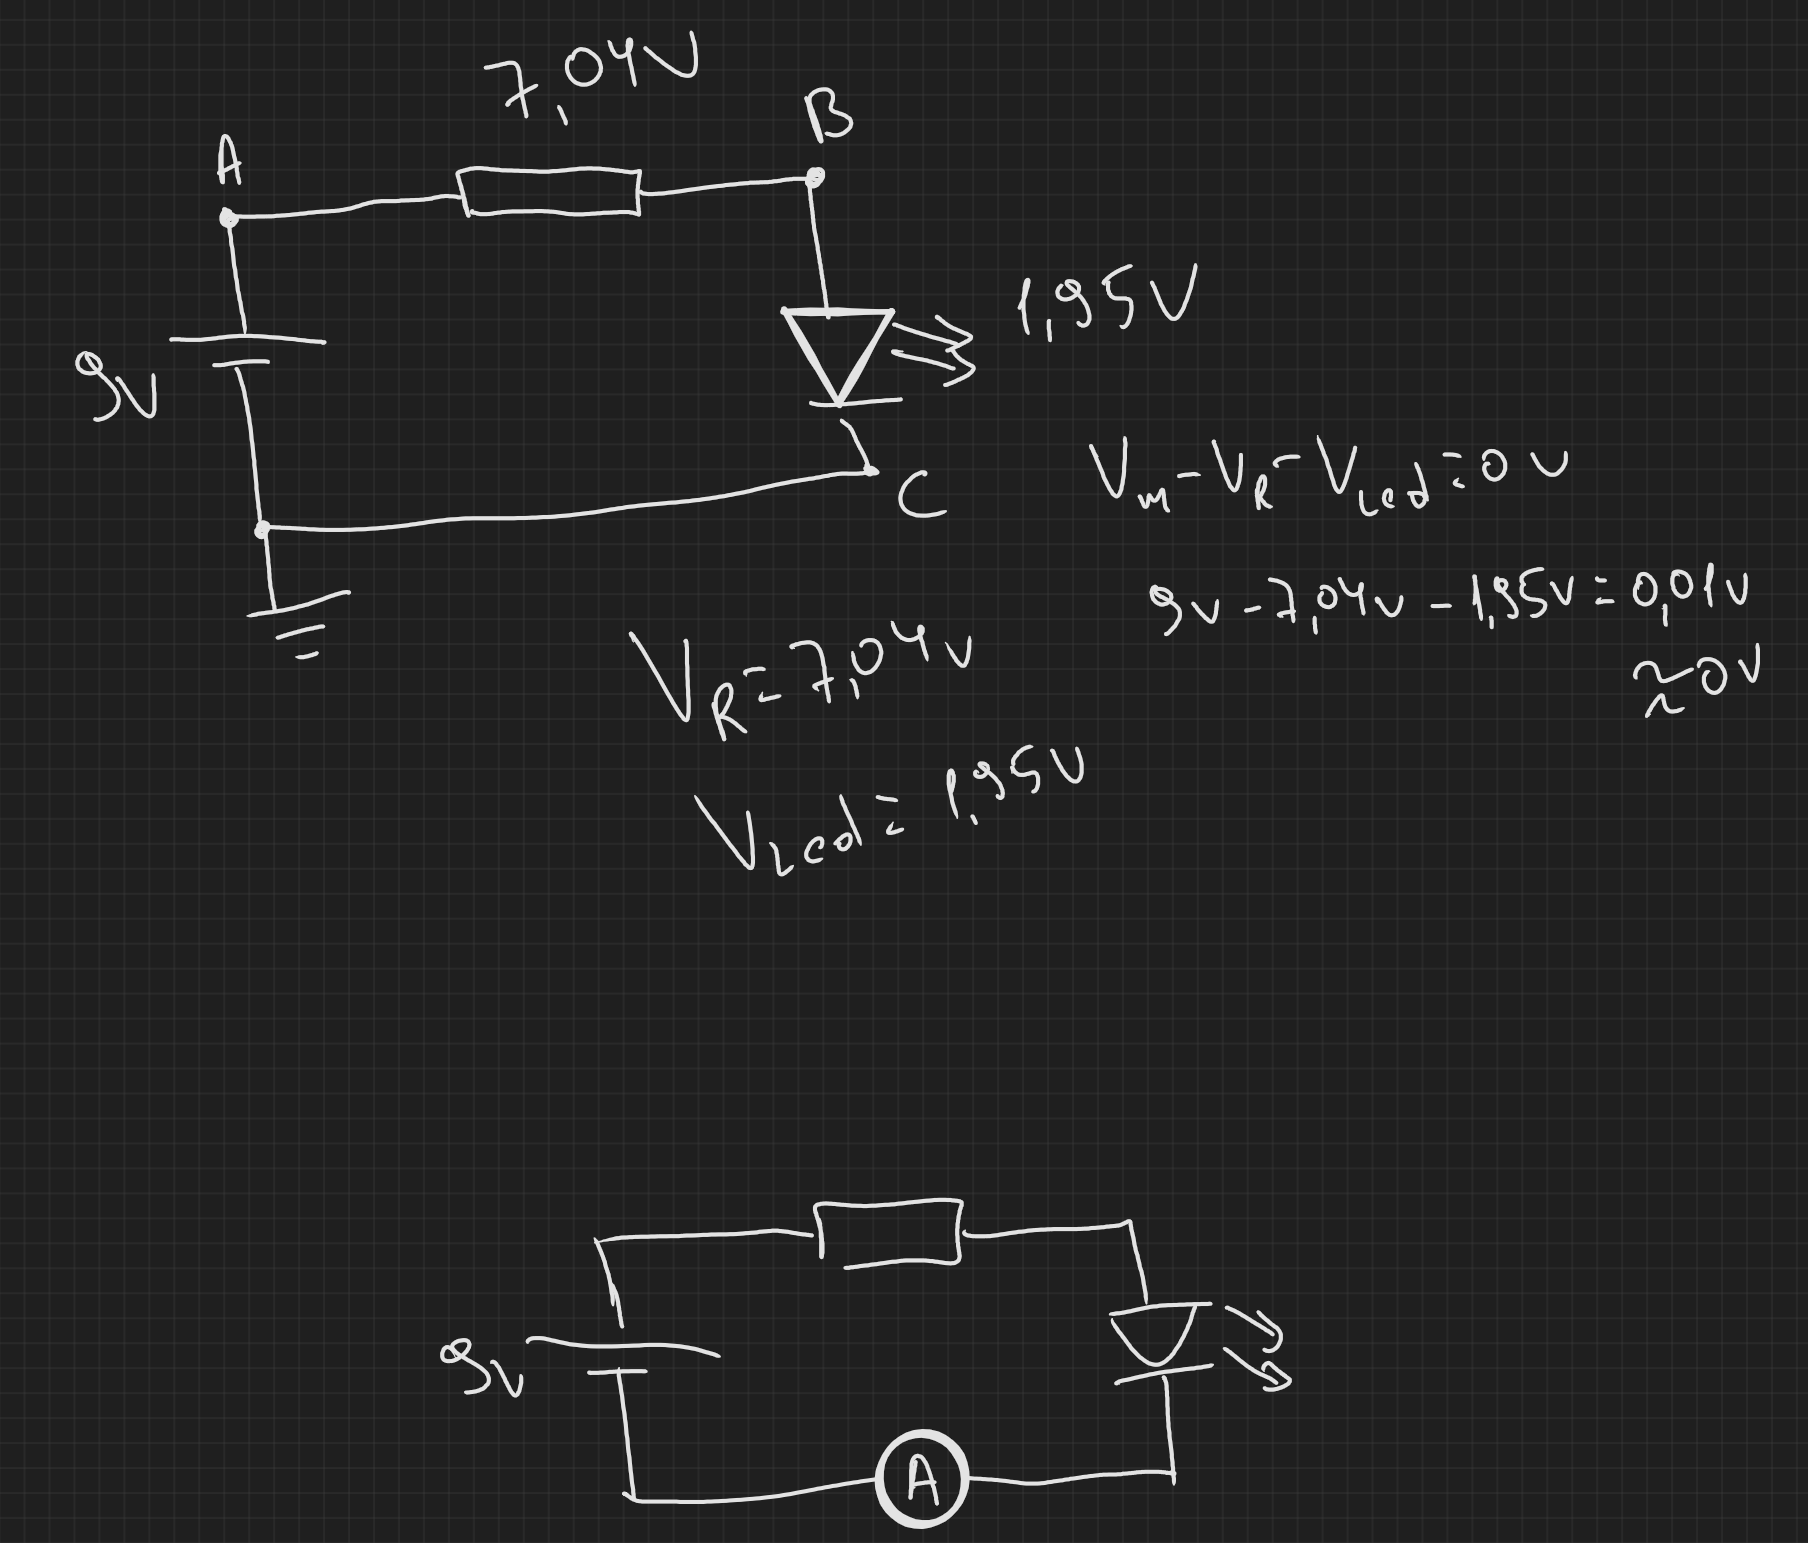 7,04V
A
B
9V
1,95V
C
Vm-VR-VLed=0V
9V-7,04V-1,95V=0,01V
≈0V
VR=7,04V
VLed=1,95V
9V
A